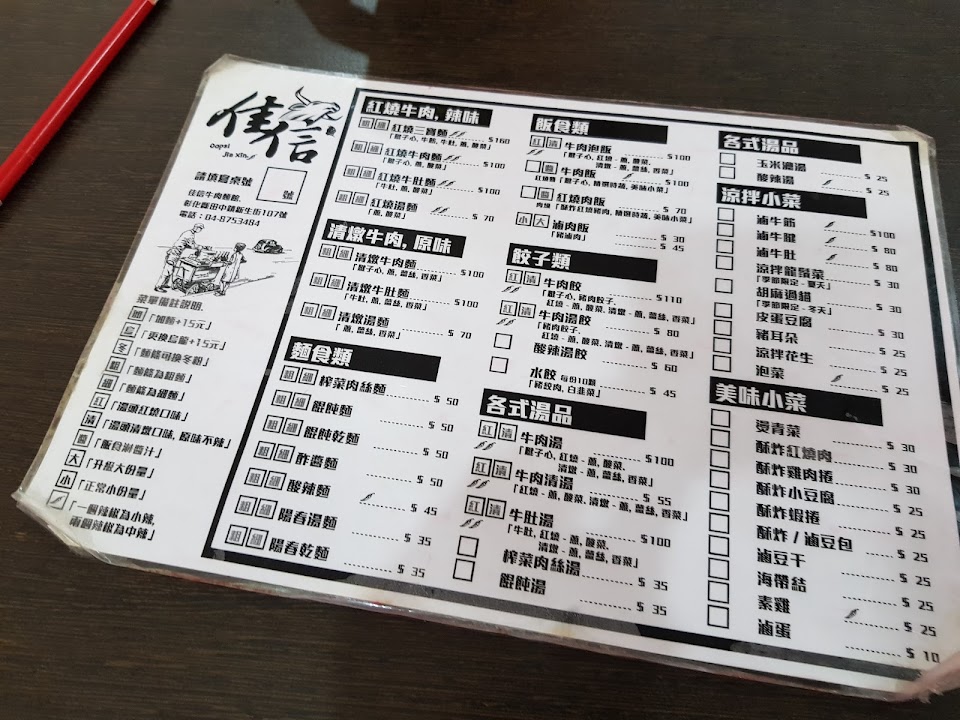 佳信
Oopsi
Jia Xin
請填寫桌號
號
佳信牛肉麵館.
彰化縣田中鎮新生街107號
電話：04-8753484
菜單備註說明.
加「加麵+15元」
烏「更換烏龍+15元」
冬「麵條可換冬粉」
粗「麵條為粗麵」
細「麵條為細麵」
紅「湯頭紅燒口味」
清「湯頭清燉口味, 原味不辣」
「飯食淋醬汁」
大「升級大份量」
小「正常小份量」
「一個辣椒為小辣,
兩個辣椒為中辣」
紅燒牛肉, 辣味
粗 細 紅燒三寶麵 $160
「腱子心, 牛筋, 牛肚, 蔥, 酸菜」
粗 細 紅燒牛肉麵 $100
「腱子心, 蔥, 酸菜」
粗 細 紅燒牛肚麵 $100
「牛肚, 蔥, 酸菜」
粗 細 紅燒湯麵 $ 70
「蔥, 酸菜」
清燉牛肉, 原味
粗 細 清燉牛肉麵 $100
「腱子心, 蔥, 薑絲, 香菜」
粗 細 清燉牛肚麵 $100
「牛肚, 蔥, 薑絲, 香菜」
粗 細 清燉湯麵 $ 70
「蔥, 薑絲, 香菜」
麵食類
粗 細 榨菜肉絲麵 $ 50
粗 細 餛飩麵 $ 50
粗 細 餛飩乾麵 $ 50
粗 細 酢醬麵 $ 50
粗 細 酸辣麵 $ 45
粗 細 陽春湯麵 $ 35
粗 細 陽春乾麵 $ 35
飯食類
紅 清 牛肉泡飯 $100
「腱子心, 紅燒 - 蔥, 酸菜,
清燉 - 蔥, 薑絲, 香菜」
牛肉飯 $100
紅燒醬「腱子心, 精選時蔬, 美味小菜」
紅燒肉飯 $ 70
肉燥「酥炸紅燒豬肉, 精選時蔬, 美味小菜」
小 大 滷肉飯 $ 30
「豬滷肉」 $ 45
餃子類
紅 清 牛肉餃 $110
「腱子心, 豬肉餃子,
紅燒 - 蔥, 酸菜, 清燉 - 蔥, 薑絲, 香菜」
紅 清 牛肉湯餃 $ 80
「豬肉餃子,
紅燒 - 蔥, 酸菜, 清燉 - 蔥, 薑絲, 香菜」
酸辣湯餃 $ 60
水餃 每份10顆 $ 45
「豬絞肉, 白韭菜」
各式湯品
紅 清 牛肉湯 $100
「腱子心, 紅燒 - 蔥, 酸菜,
清燉 - 蔥, 薑絲, 香菜」
紅 清 牛肉清湯 $ 55
「紅燒 - 蔥, 酸菜, 清燉 - 蔥, 薑絲, 香菜」
紅 清 牛肚湯 $100
「牛肚, 紅燒 - 蔥, 酸菜,
清燉 - 蔥, 薑絲, 香菜」
榨菜肉絲湯 $ 35
餛飩湯 $ 35
各式湯品
玉米濃湯 $ 25
酸辣湯 $ 25
涼拌小菜
滷牛筋 $100
滷牛腱 $ 80
滷牛肚 $ 80
涼拌龍鬚菜
「季節限定 - 夏天」
胡麻過貓
「季節限定 - 冬天」 $ 30
皮蛋豆腐 $ 30
豬耳朵 $ 25
涼拌花生 $ 25
泡菜 $ 25
美味小菜
燙青菜 $ 30
酥炸紅燒肉 $ 30
酥炸雞肉捲 $ 30
酥炸小豆腐 $ 25
酥炸蝦捲 $ 25
酥炸 / 滷豆包 $ 25
滷豆干 $ 25
海帶結 $ 25
素雞 $ 25
滷蛋 $ 10